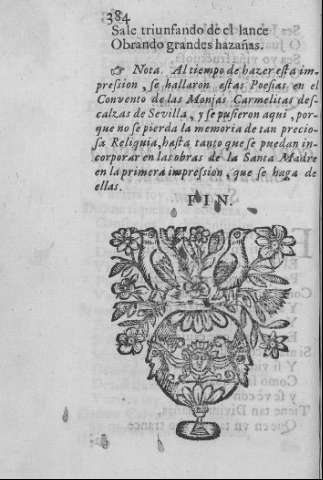 384
Sale triunfando de el lance
Obrando grandes hazañas.
☞ Nota. Al tiempo de hazer esta im-
pression, se hallaron estas Poesias en el
Convento de las Monjas Carmelitas des-
calzas de Sevilla, y se pusieron aqui, por-
que no se pierda la memoria de tan precio-
sa Reliquia, hasta tanto que se puedan in-
corporar en las obras de la Santa Madre
en la primera impression, que se haga de
ellas.
FIN.